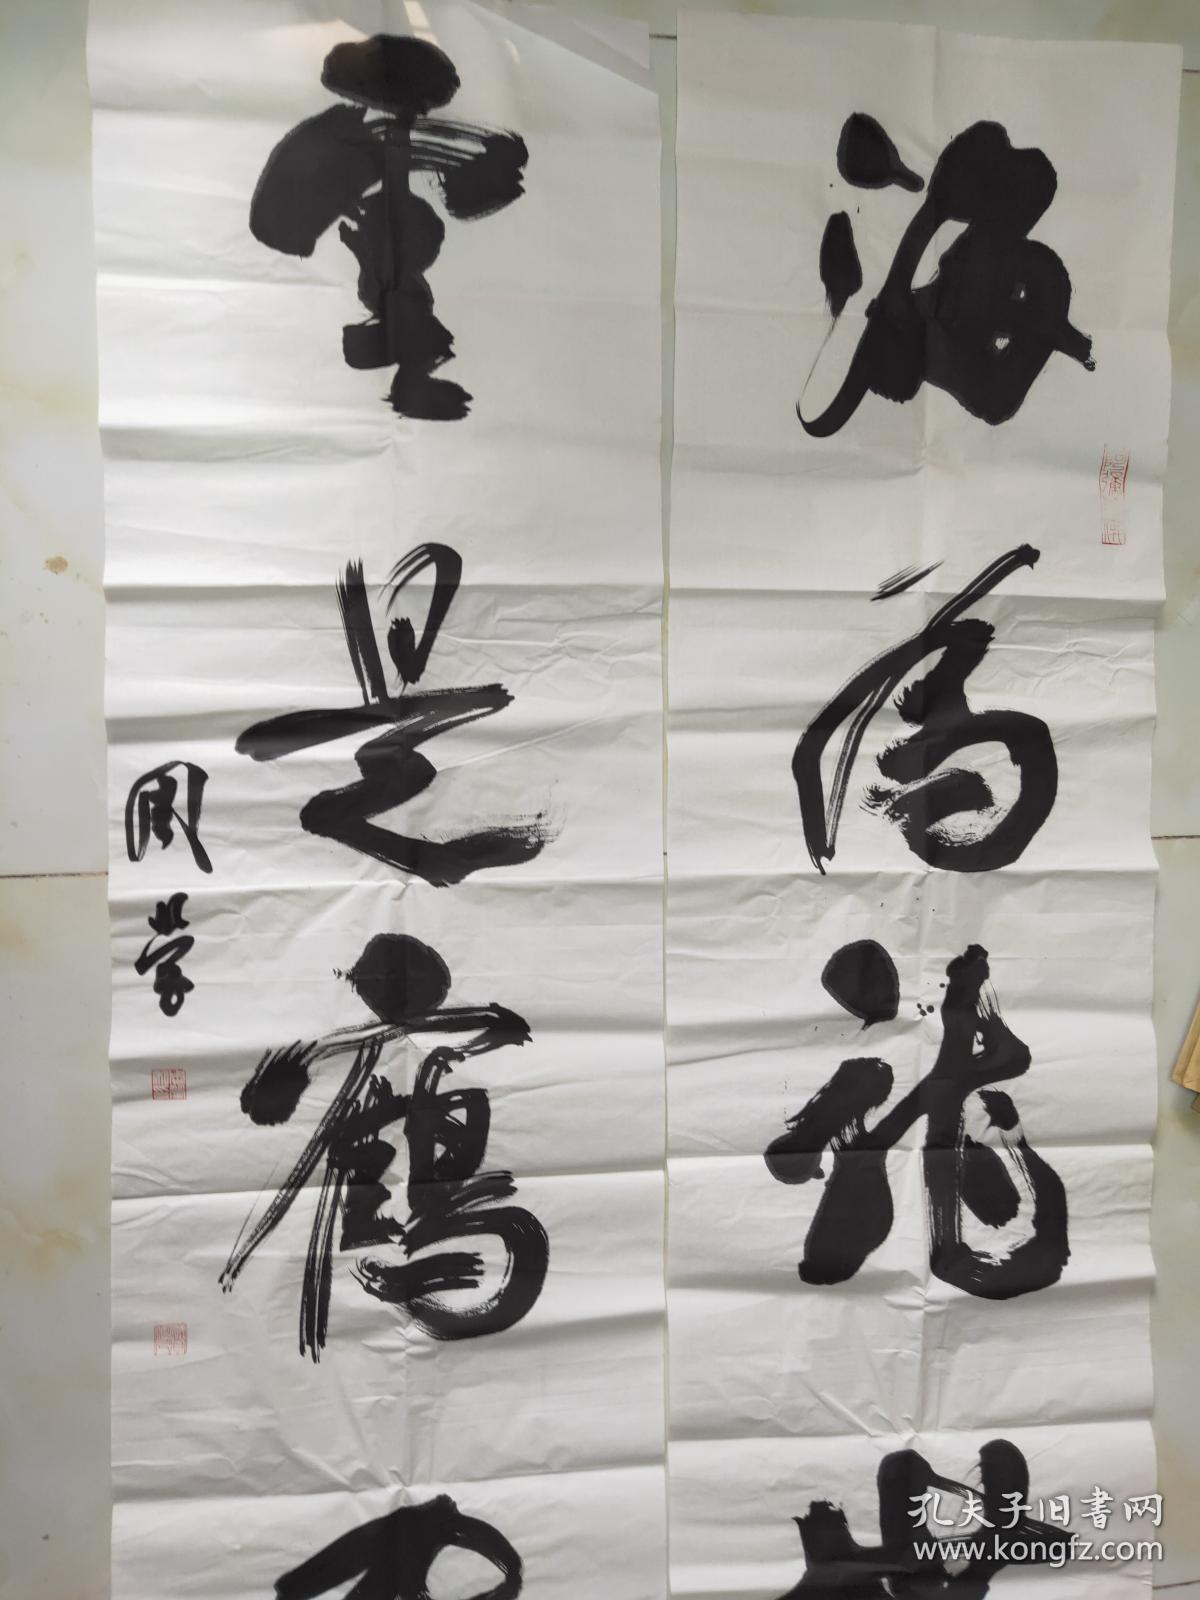 海为龙世
云是鹤
周学
孔夫子旧书网
www.kongfz.com